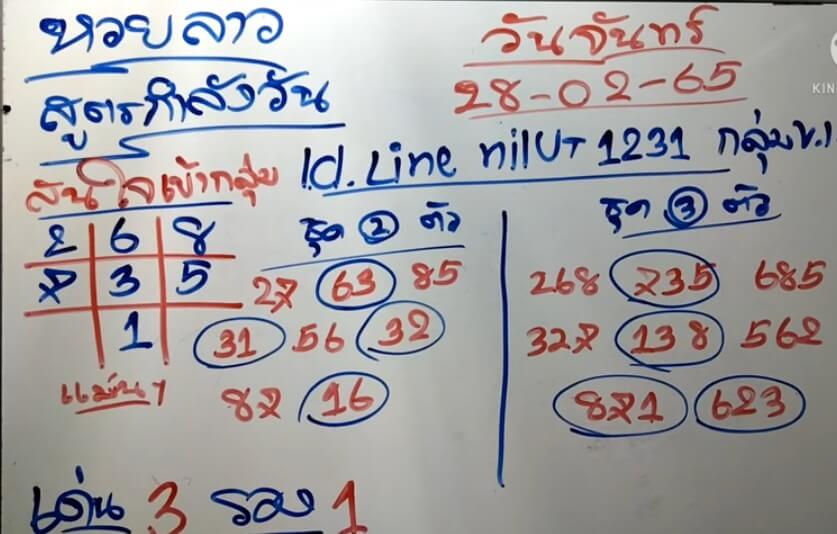 หวยลาว
วันจันทร์
28-02-65
สูตรกำลังวัน
สนใจเข้ากลุ่ม Id.Line nilUT 1231 กลุ่มข.1
2 6 8
7 3 5
1
แม่นๆ
ชุด 2 ตัว
27 63 85
31 56 32
87 16
ชุด 3 ตัว
268 735 685
327 138 562
871 623
เด่น 3 รอง 1
KIN